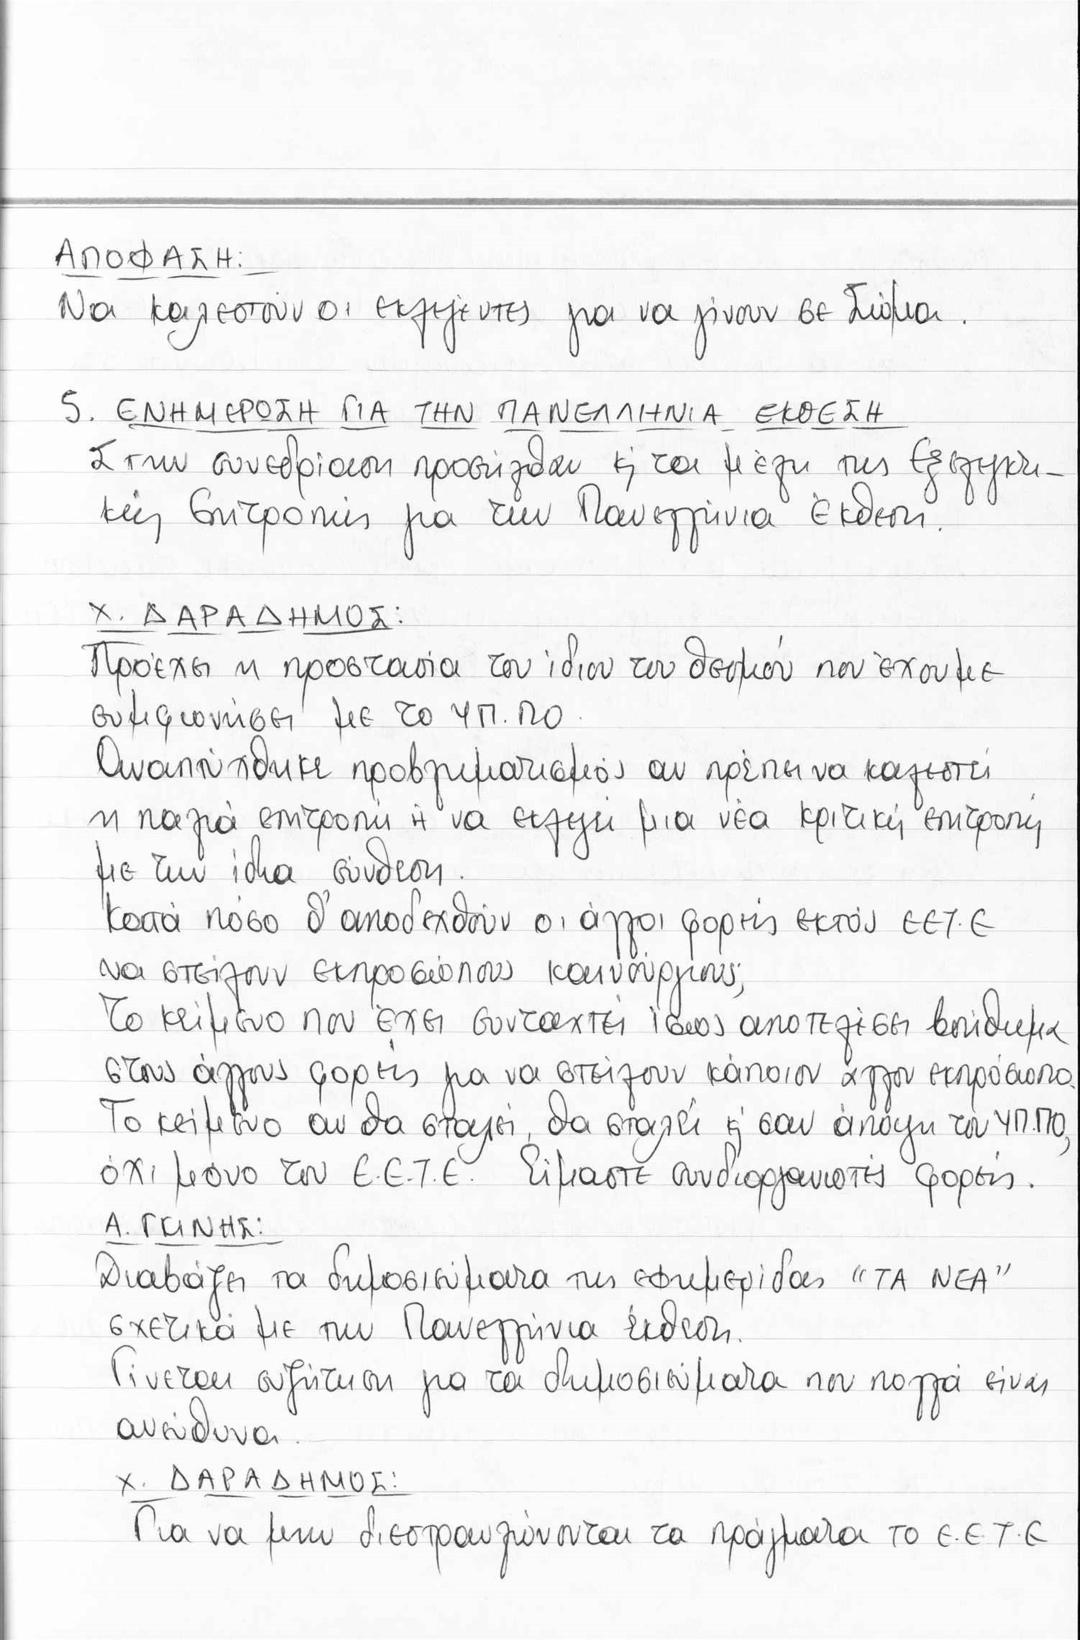 ΑΠΟΦΑΣΗ:
Να καλεστούν οι εκλεγέντες για να γίνουν σε Σώμα.
5. ΕΝΗΜΕΡΩΣΗ ΓΙΑ ΤΗΝ ΠΑΝΕΛΛΗΝΙΑ ΕΚΘΕΣΗ
Στην συνεδρίαση προσήλθαν κ; τα μέλη της Εξελεγκτι-
κής Επιτροπής για την Πανελλήνια Έκθεση.
Χ. ΔΑΡΑΔΗΜΟΣ:
Προέχει η προστασία του ίδιου του θεσμού που έχουμε
συμφωνήσει με το ΥΠ.ΠΟ.
Αναπτύχθηκε προβληματισμός αν πρέπει να καλεστεί
η παλιά επιτροπή ή να εκλεγεί μια νέα κριτική επιτροπή
με την ίδια σύνθεση.
Κατά πόσο θ' αποδεχθούν οι άλλοι φορείς εκτός ΕΕΤ.Ε
να στείλουν εκπροσώπους καινούργιους;
Το κείμενο που έχει συνταχτεί ίσως αποτελέσει επίθεμα
στους άλλους φορείς για να στείλουν κάποιον άλλον εκπρόσωπο.
Το κείμενο αν θα σταλεί, θα σταλεί κ; σαν άποψη του ΥΠ.ΠΟ,
όχι μόνο του Ε.Ε.Τ.Ε. Είμαστε συνδιοργανωτές φορείς.
Α. ΓΩΝΗΣ:
Διαβάζει τα δημοσιεύματα της εφημερίδας "ΤΑ ΝΕΑ"
σχετικά με την Πανελλήνια έκθεση.
Γίνεται συζήτηση για τα δημοσιεύματα που πολλά είναι
ανεύθυνα.
Χ. ΔΑΡΑΔΗΜΟΣ:
Για να μην διεστραυλώνονται τα πράγματα το Ε.Ε.Τ.Ε